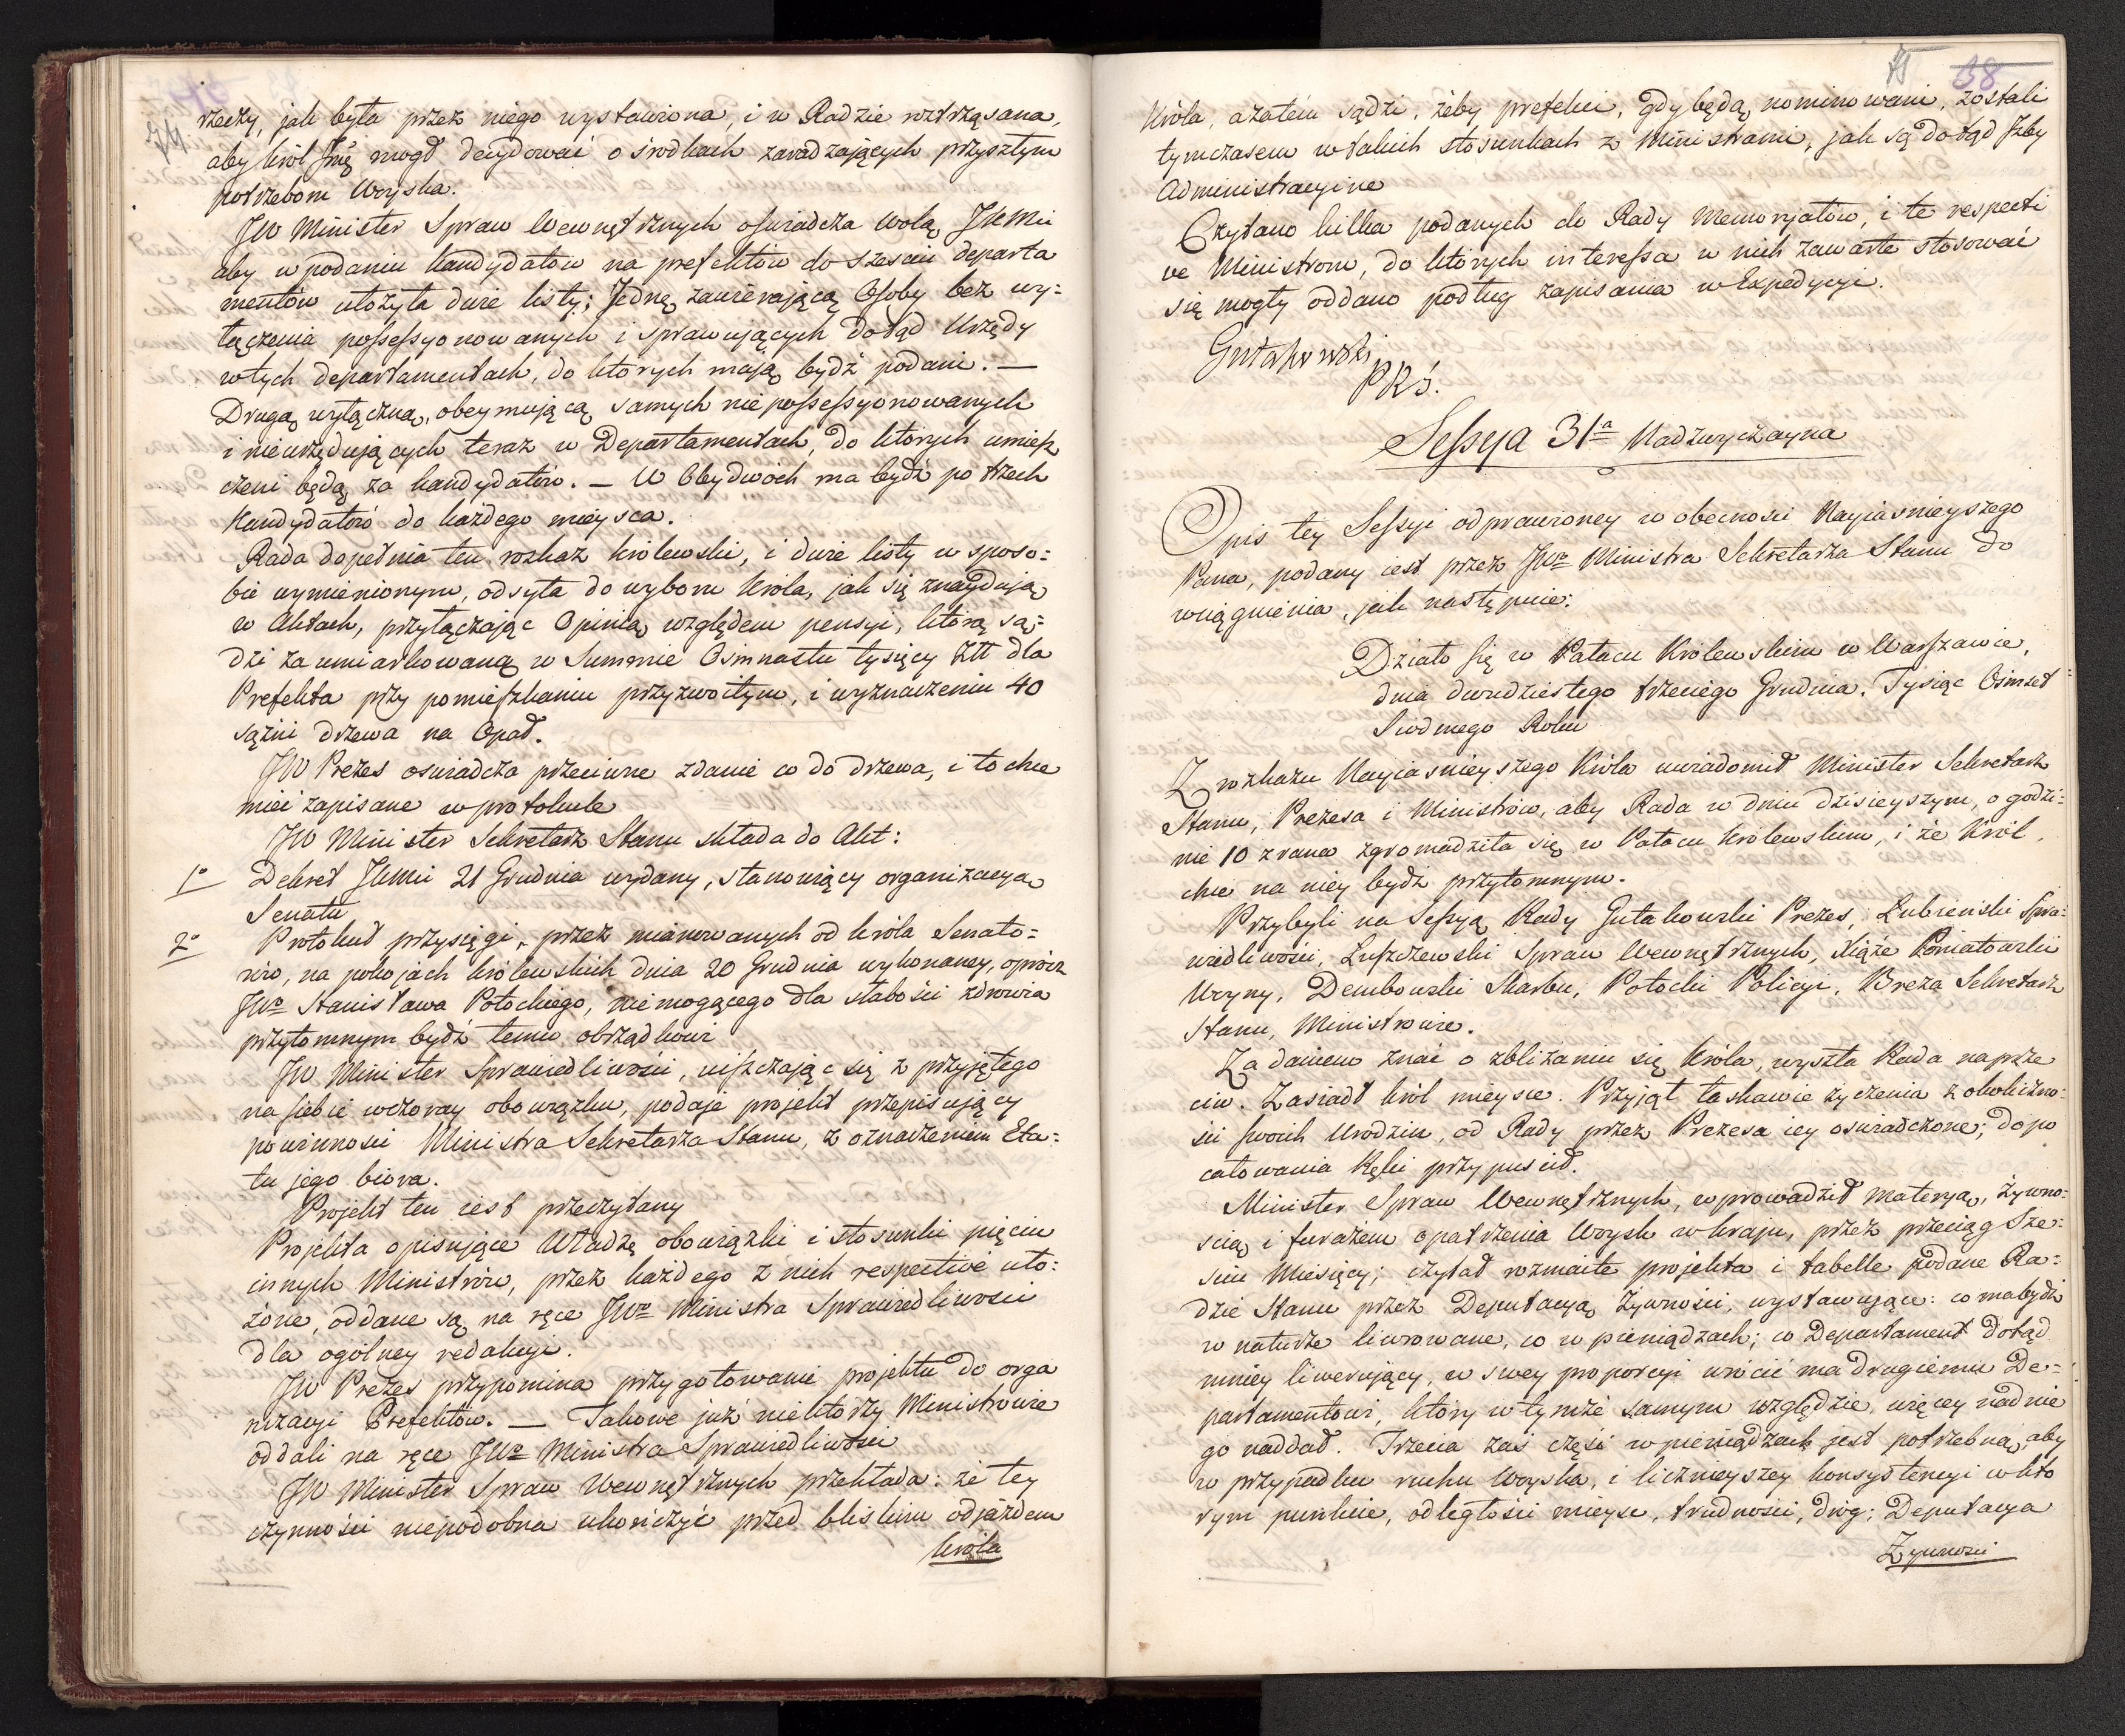 rzeczy, jak była przez niego wystawiona, i w Radzie roztrząsana,
aby król Jmć mógł decydować o środkach zaradzających przyszłym
potrzebom Woyska.
JW Minister Spraw Wewnętrznych oświadcza wolą JKMci
aby w podaniu kandydatów na prefektów do sześciu departa
mentów ułożyła dwie listy; Jednę zawierającą Osoby bez wy=
łączenia possessyonowanych i sprawujących dotąd Urzędy
w tych departamentach, do których mają bydź podani. —
Drugą wyłączną, obeymującą samych nieposessyonowanych
i nieurzędujących teraz w Departamentach, do których umiesz
czeni będą za kandydatów. — W Obydwóch ma bydź po trzech
Kandydatów do każdego mieysca.
Rada dopełnia ten rozkaz królewski, i dwie listy w sposo=
bie wymienionym, odsyła do wyboru Króla, jak się znaydują
w Aktach, przyłączając Opinią względem pensyi, którą są=
dzi za umiarkowaną w Summie Osimnastu tysięcy Złł dla
Prefekta przy pomieszkaniu przyzwoitym, i wyznaczeniu 40
sążni drzewa na Opał.
JW Prezes oświadcza przeciwne zdanie co do drzewa, i to chce
mieć zapisane w protokule
JW Minister Sekretarz Stanu składa do Akt:
1o Dekret JKMci 21 Grudnia wydany, stanowiący organizacyą
Senatu
2o Protokuł przysięgi, przez mianowanych od króla Senato=
rów, na pokojach królewskich dnia 20 Grudnia wykonaney, oprócz
JWo Stanisława Potockiego, niemogącego dla słabości zdrowia
przytomnym bydź temu obrządkowi
JW Minister Sprawiedliwości, uiszczając się z przyjętego
na siebie wczoray obowiązku, podaje projekt przepisujący
powinności Ministra Sekretarza Stanu, z oznaczeniem Eta=
tu jego biora.
Projekt ten iest przeczytany
Projekta opisujące Władzę obowiązki i stosunki pięciu
innych Ministrów, przez każdego z nich respective uło=
żone, oddane są na ręce JWo Ministra Sprawiedliwości
dla ogólney redakcyi.
JW Prezes przypomina przygotowanie projektu do orga
nizacyi Prefektów. — Takowe już niektórzy Ministrowie
oddali na ręce JWo Ministra Sprawiedliwości
JW Minister Spraw Wewnętrznych przekłada: że tey
czynności niepodobna ukończyć przed bliskim odjazdem
króla
75 38
Króla, a zatém sądzi, żeby prefekci, gdy będą nominowani, zostali
tymczasem w takich stosunkach z Ministrami, jak są dotąd Izby
Administracyine
Czytano kilka podanych do Rady Memoryałów, i te respecti
ve Ministrom, do których interessa w nich zawarte stosować
się mogły oddano podług zapisania w Expedycyi.
Gutakowski
PRS.
Sessya 31a Nadzwyczayna
Opis tey Sessyi odprawioney w obecności Nayiaśnieyszego
Pana, podany iest przez JWo Ministra Sekretarza Stanu do
wciągnienia, jak następuie:
Działo się w Pałacu Królewskim w Warszawie,
dnia dwudziestego trzeciego Grudnia. Tysiąc Ośmset=
Siódmego Roku
Z rozkazu Nayiaśnieyszego Króla uwiadomił Minister Sekretarz
Stanu, Prezesa i Ministrów, aby Rada w dniu dzisieyszym, o godzi=
nie 10 z rana zgromadziła się w Pałacu królewskim, i że Król
chce na niey bydz przytomnym.
Przybyli na Sessyą Rady Gutakowski Prezes, Łubieński Spra=
wiedliwości, Łuszczewski Spraw Wewnętrznych, Xiąże Poniatowski
Woyny, Dembowski Skarbu, Potocki Policyi, Breza Sekretarz
Stanu, Ministrowie.
Za daniem znać o zbliżaniu się Króla, wyszła Rada naprze
ciw. Zasiadł król mieysce. Przyjął łaskawie życzenia z okoliczno=
ści swoich Urodzin, od Rady przez Prezesa iey oświadczone; do po
całowania Ręki przypuścił.
Minister Spraw Wewnętrznych, wprowadził materyą, żywno=
scią i furażem opatrzenia Woysk w kraju, przez przeciąg Sze=
sciu Miesięcy; czytał rozmaite projekta i tabelle podane Ra=
dzie Stanu przez Deputacyą Żywności, wystawujące: co ma bydz
w naturze liwrowane, co w pieniądzach; co Departament dotąd
mniey liwerujący, w swey proporcyi wrócić ma drugiemu De=
partamentowi, który w tymże samym względzie, więcey nad nie
go naddał. Trzecia zaś część w pieniądzach jest potrzebną, aby
w przypadku ruchu Woyska, i licznieyszey konsystencyi w któ
rym punkcie, odległości mieysc, trudności, dróg; Deputacya
Żywności